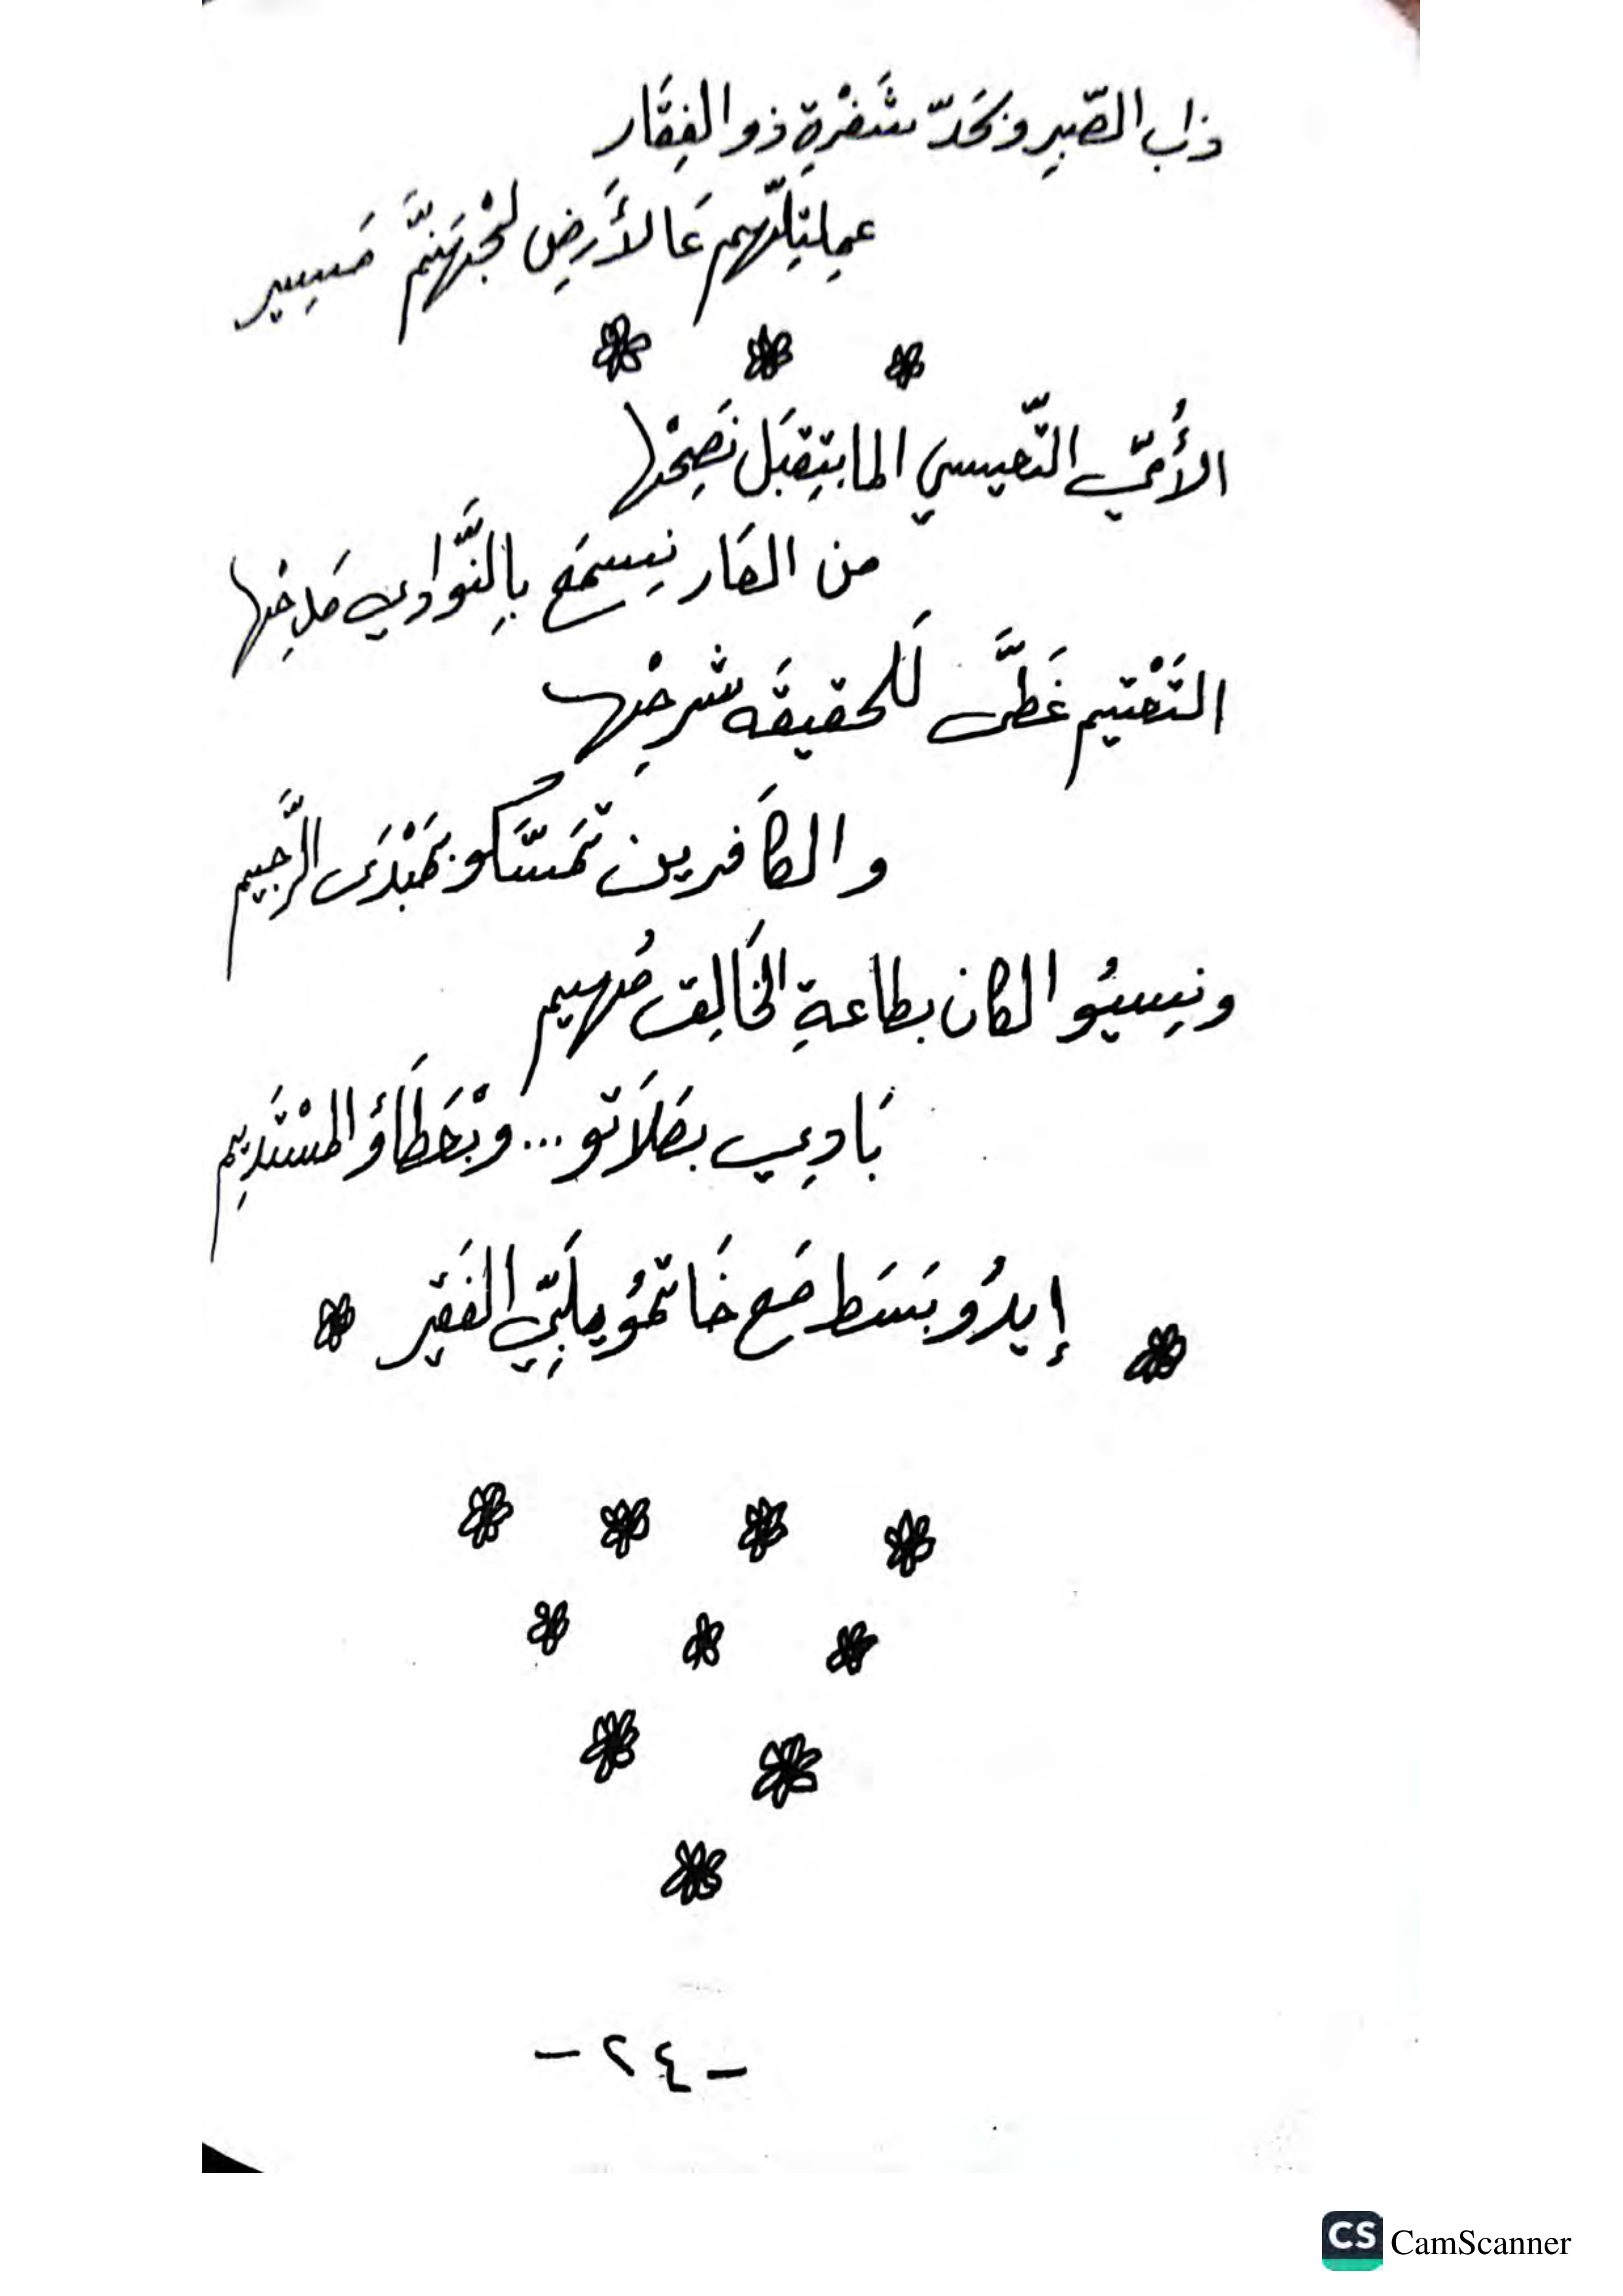 ذاب الصّبر وبَحَدّ شَفْرةِ ذو الفِقَار
عمِلتِلّهم عَا الأَرضِ لجْهَنَّم مَسِير
الأُمّي التّعيسي الما بتِقبَل نَصِحْها
من العَار نِسمَع بِالنَّوادي مَدِحْها
التَعْتيم غَطَّى لَلحقيقَه شرحِها
والكَافرين تمَسَّكو بمَبْدَى الرَّجيم
ونِسيُو الكان بطاعةِ الخَالِق مُهيم
بَادي بصَلَاتو... وبْخَطَاؤ المسْتَديم
إيدُو بَسَط مَع خَاتمُو يلَبّي الفَقير
- ٢٤ -
CS CamScanner